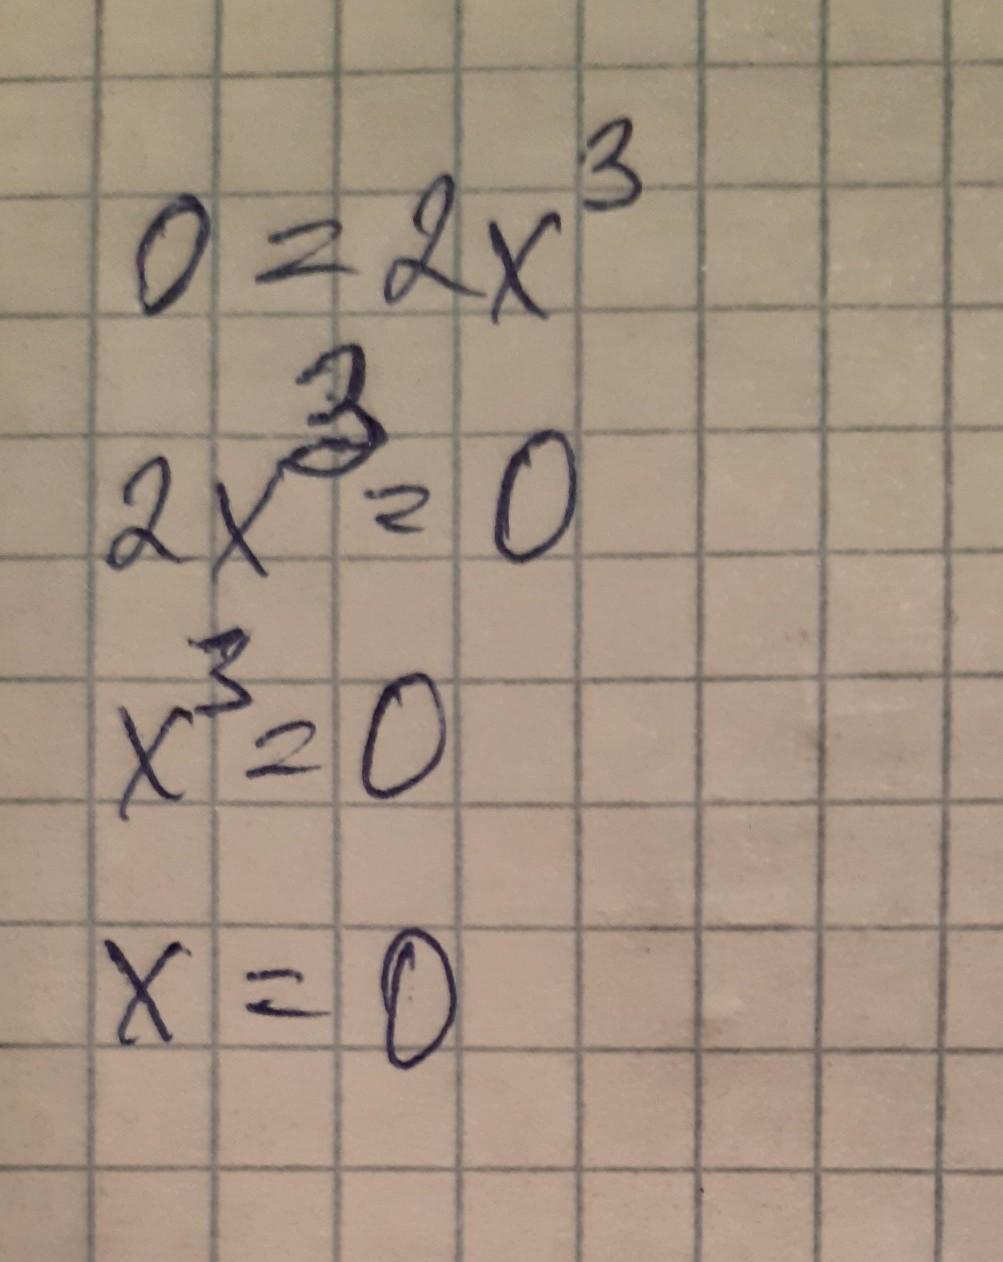 0 = 2x³
2x³ = 0
x³ = 0
x = 0